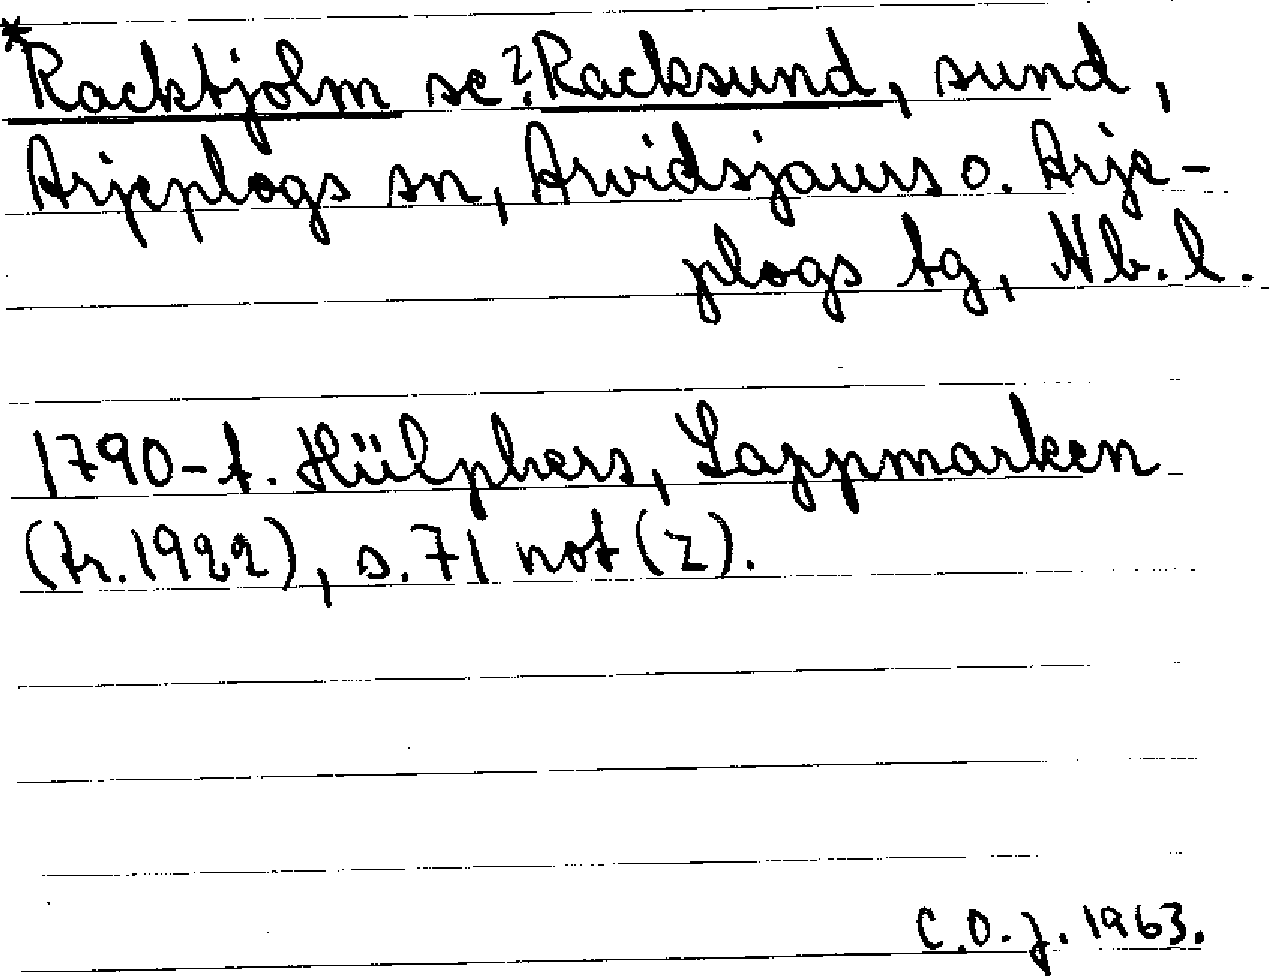 *Racktjolm se? Racksund, sund,
Arjeplogs sn, Arvidsjaurs o. Arje-
plogs tg, Nb. l.
1790-t. Hülphers, Lappmarken
(tr. 1922), s. 71 not (z).
C.O.J. 1963.